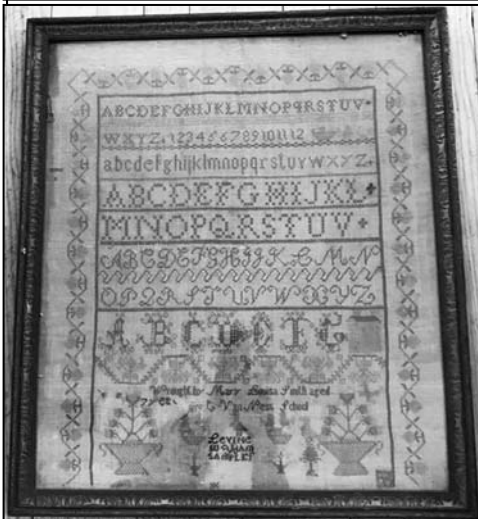 ABCDEFGHIJKLMNOPQRSTUV
WXYZ. 1 2 3 4 5 6 7 8 9 10 11 12
abcdefghijklmnopqrstuvwxyz.
ABCDEFGHIJKL
MNOPQRSTUV
ABCDEFGHIJKLMN
OPQRSTUVWXYZ
ABCD
Wrought by Mary Louisa Smith aged
7 year
Ness School
LEVINE